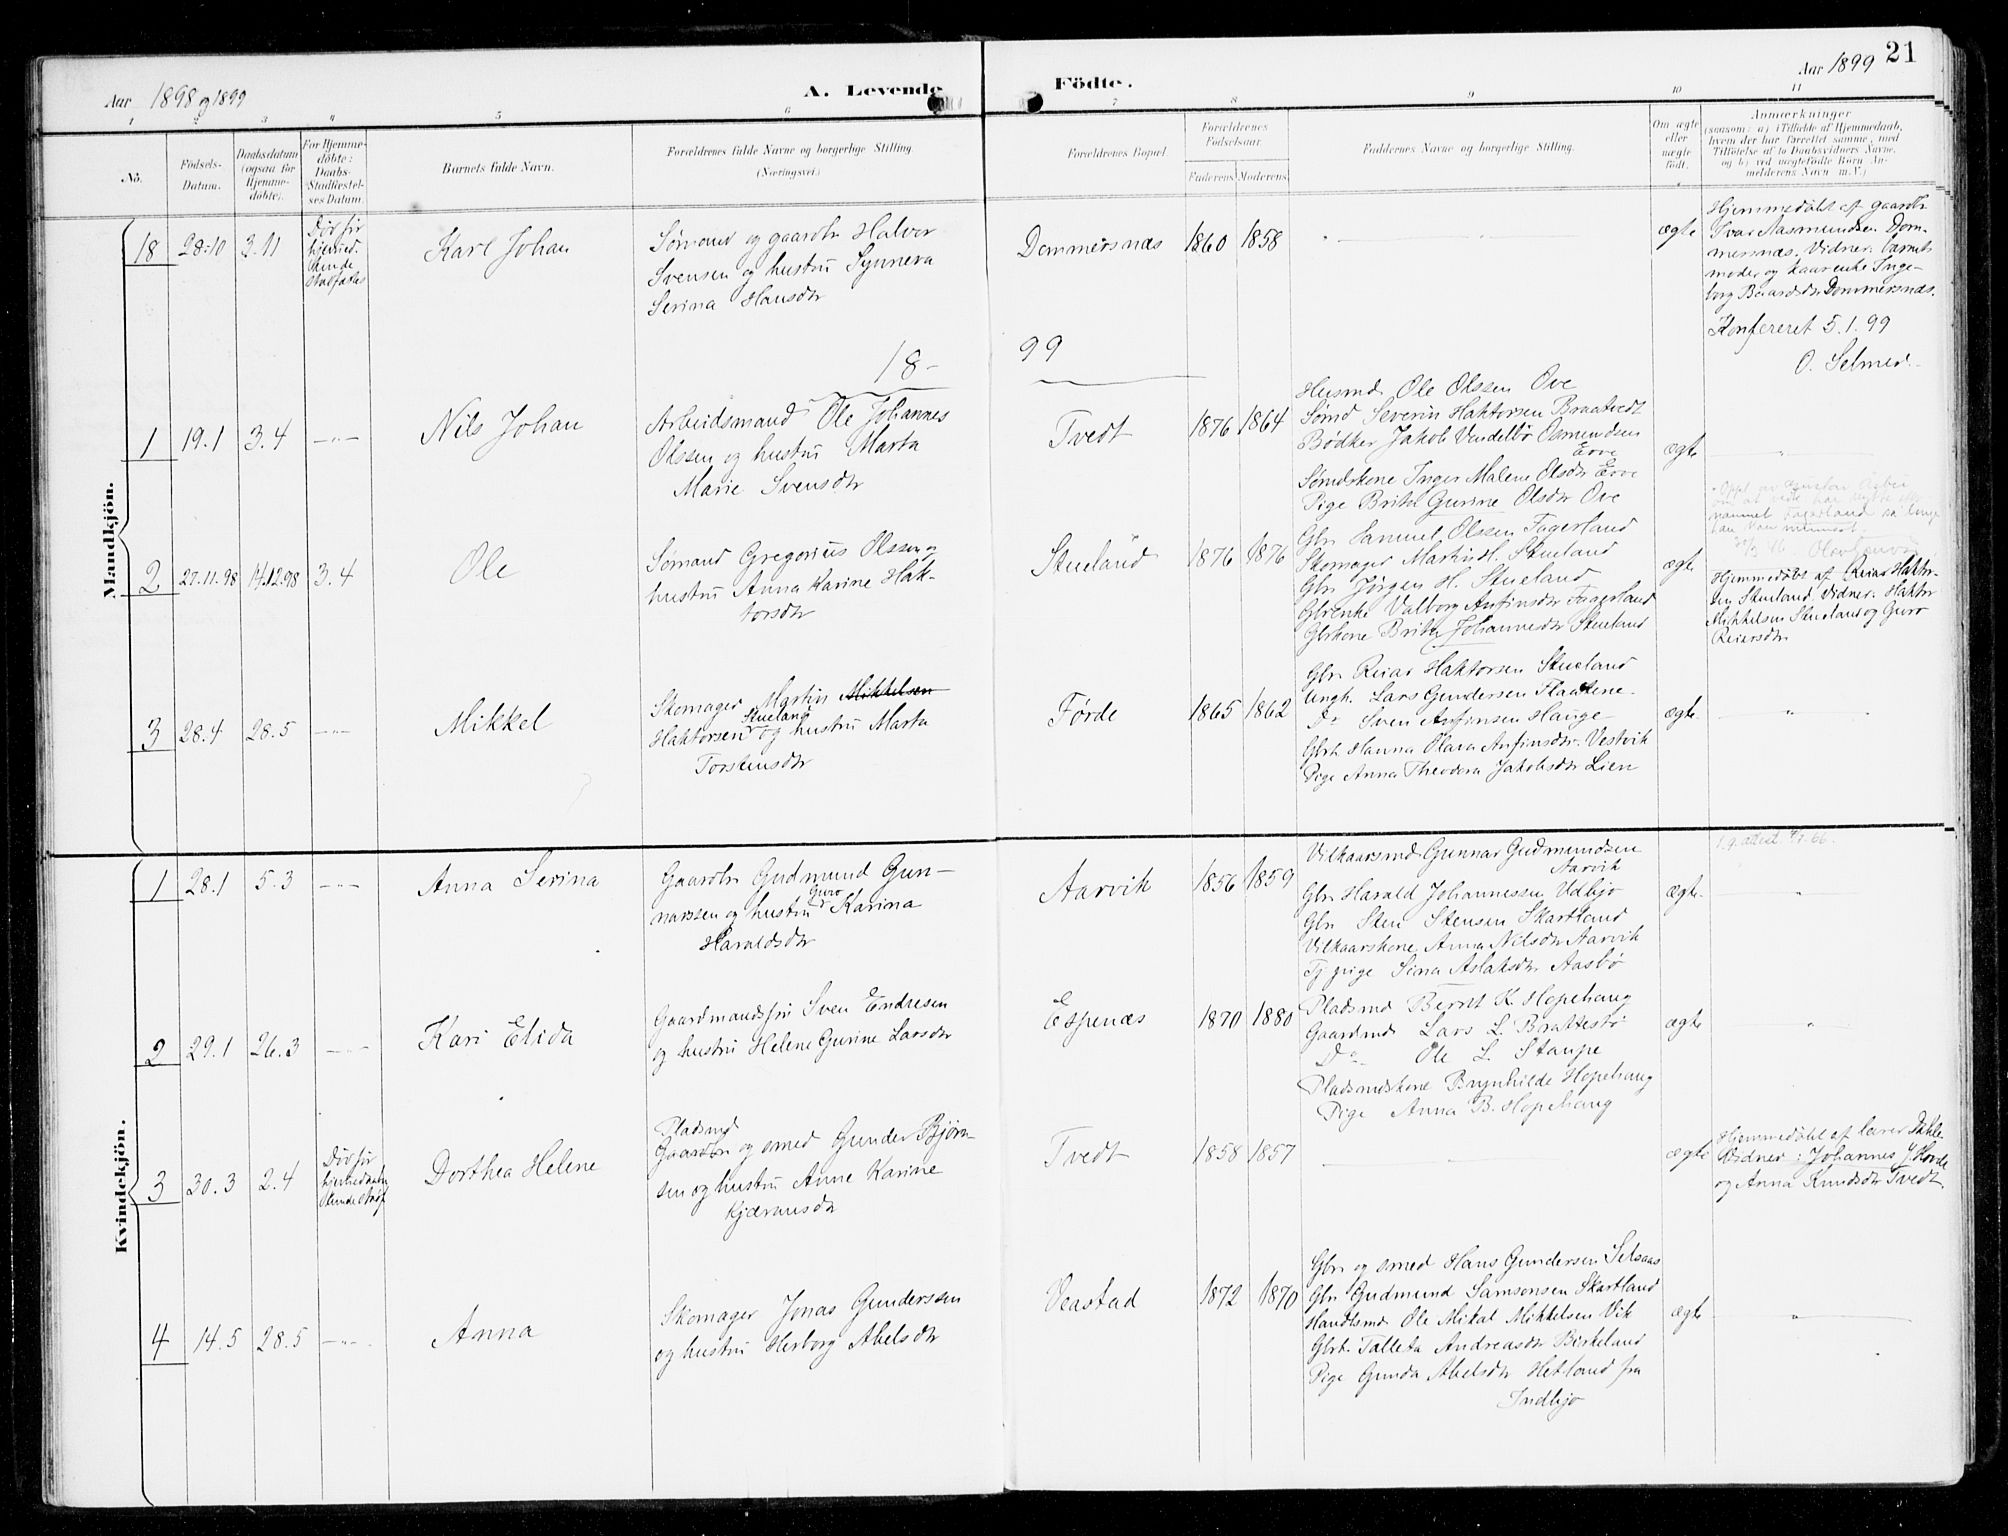 Aar 1898 og 1899
A. Levende
Födte.
Aar 1899
21
1 2 3 4 5 6 7 8 9 10 11
No.
Födsels-Datum.
Daabsdatum (ogsaa for Hjemmedöbte).
For Hjemmedöbte: Daabs-Stadfestelses Datum.
Barnets fulde Navn.
Forældrenes fulde Navne og borgerlige Stilling.
(Næringsvei.)
Forældrenes Bopæl.
Forældrenes Födselsaar.
Faderens
Moderens
Faddernes Navne og borgerlige Stilling.
Om ægte eller uægte födt.
Anmærkninger
(saasom: a) i Tilfælde af Hjemmedaab,
hvem der har forrettet samme, med
Tilföielse af to Daabsvidners Navne,
og b) ved uægtefödte Börn An-
melderens Navn m. V.)
Mandkjön.
18 28.10 3.11
Död før
hjemmed.
kunde
stadfæstes
Karl Johan
Sømand og gaardbr Halvor
Svensen og hustru Synneva
Serina Hansdtr
Dommersnæs 1860 1858
ægte
Hjemmedöbt af gaardbr
Ivar Rasmundsen Dom-
mersnæs. Vidner: barnets
moder og kaarenke Inge-
borg Baardsdtr Dommersnæs.
Konfereret 5.1.99
O. Selmer.
18-
99
1 19.1 3.4 -"-
Nils Johan
Arbeidsmand Ole Johannes
Olssen og hustru Marta
Marie Svensdtr
Tvedt 1876 1864
Husmd Ole Olssen Ove
Sømd Severin Haktorsen Braatvedt
Bødker Jakob Vendelbo Osmundsen
Eove
Sømdskone Inger Malene Olsdtr Eove
Pige Brita Gurine Olsdtr Ove
ægte
2 27.11.98 14.12.98 3.4
Ole
Sømand Gregorius Olssen og
hustru Anna Karine Hak-
torsdtr
Stueland 1876 1876
Gbr. Samuel Olssen Fagerland
Skomager Martin H. Stueland
Gbr Jørgen H. Stueland
Gbrenke Valborg Anfinsdtr Fagerland
Gbrkone Brita Johannesdtr Stueland
ægte
Hjemmedöbt af Reiar Haktor-
sen Stueland. Vidner: Haktor
Mikkelsen Stueland og Guro
Reiarsdtr
3 28.4 28.5 -"-
Mikkel
Skomager Martin Mikkelsen
Stueland
Haktorsen og hustru Marta
Torstensdtr
Førde 1865 1862
Gbr. Reiar Haktorsen Stueland
Ungk. Lars Gundersen Flaatene
Do Sven Anfinsen Hauge
Gbrk. Hanna Olava Anfinsdtr. Vestvik
Pige Anna Theodora Jakobsdtr Lien
ægte
Kvindekjön.
1 28.1 5.3 -"-
Anna Serina
Gaardbr Gudmund Gun-
Guro
narssen og hustru Karina
Haraldsdtr
Aarvik 1856 1859
Vilkaarsmd Gunnar Gudmundsen
Aarvik
Gbr. Harald Johannessen Udbjo
Gbr. Sten Stensen Skartland
Vilkaarskone Anna Nilsdtr Aarvik
Tj. pige Sina Aslaksdtr Aasbø
ægte
2 29.1 26.3 -"-
Kari Elida
Gaardmandsfri Sven Endresen
og hustru Helene Gurine Larsdtr
Espenæs 1870 1880
Pladsmd Bernt K. Hopehaug
Gaardmd Lars L. Brattestø
Do Ole L. Staupe
Pladsmdskone Brynhilde Hopehaug
Pige Anna B. Hopehaug
ægte
3 30.3 2.4
Död før
Dorthea Helene
Pladsmd
Gaardbr og smed Gunder Bjørn-
sen og hustru Anne Karine
Kjæransdtr
Tvedt 1858 1857
ægte
Hjemmedöbt af lærer Dahle
Vidner: Johannes J. Hovde
og Anna Knudsdtr Tvedt.
4 14.5 28.5 -"-
Anna
Skomager Jonas Gunderssen
og hustru Herborg Abelsdtr
Veastad 1872 1870
Gbr. og smed Hans Gundersen Selsaas
Gbr. Gudmund Samsonsen Skartland
Handlsmd Ole Mikal Mikkelsen Vik
Gbrk. Talleta Andreasdtr Birkeland
Pige Gunda Abelsdtr Hetland fra
Indbjo
ægte